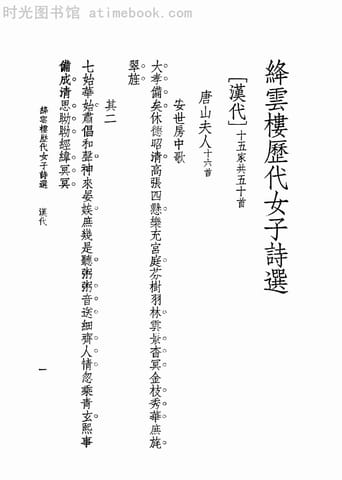 时光图书馆 - www.atimebook.com
絳雲樓歷代女子詩選
［漢代］十五家共五十首
唐山夫人十六首
安世房中歌
大孝備矣。休德昭清。高張四懸。樂充宮庭。芬樹羽林。雲景杳冥。金枝秀華。庶旄
翠旌。
其二
七始華始。肅倡和聲。神來宴娭。庶幾是聽。粥粥音送。細齊人情。忽乘青玄。熙事
備成。清思眑眑。經緯冥冥。
絳雲樓歷代女子詩選　漢代
一